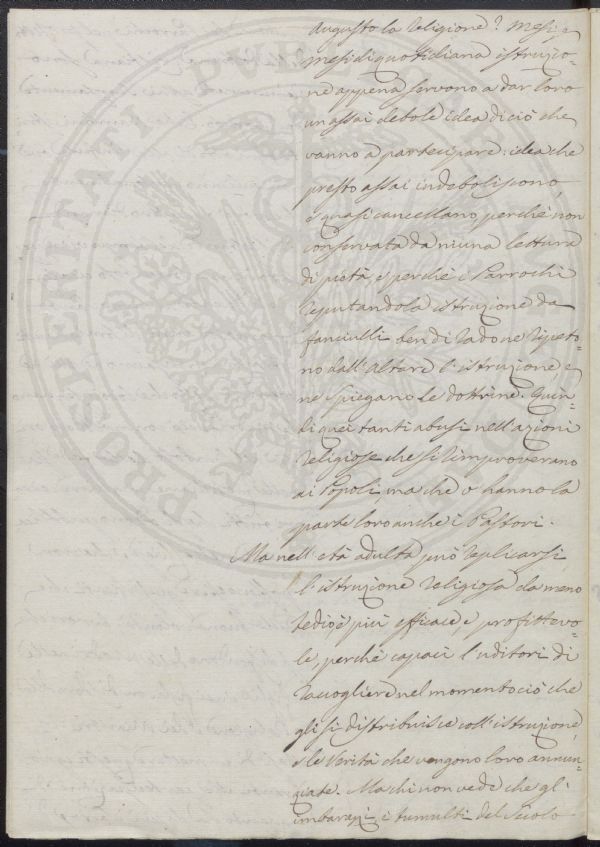 Augusto la Religione? Mesi, e
mesi di quotidiana istruzio-
ne appena servono a dar loro
un assai debole idea di ciò che
vanno a partecipare: idea che
presto assai indeboliscono,
e quasi cancellano, perchè non
conservata da niuna lettura
di pietà, e perchè i Parrochi
reputandola istruzione da
fanciulli ben di rado ne ripeto-
no dall'Altare l'istruzione, e
ne spiegano le dottrine. Quin-
di quei tanti abusi nell'azioni
religiose che si rimproverano
ai Popoli, ma che v'hanno la
parte loro anche i Pastori.
Ma nell'età adulta può replicarsi
l'istruzione religiosa da meno
tedio, è più efficace, e profittevo-
le, perchè capaci l'uditori di
raccogliere nel momento ciò che
gli si distribuisce coll'istruzione,
e le Verità che vengono loro annun-
ziate. Ma chi non vede che gl'
imbarazzi, e tumulti del Secolo